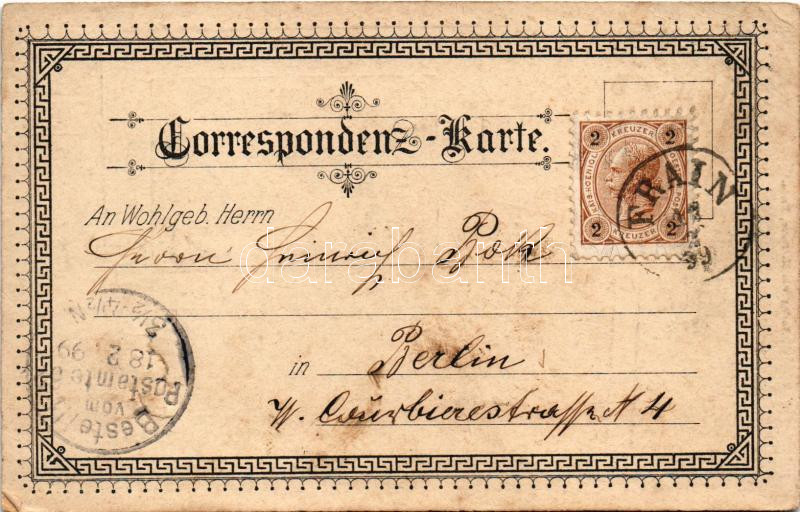 Correspondenz-Karte.
2 KREUZER 2
2 KREUZER 2
FRAIN
99
An Wohlgeb. Herrn
Herrn Heinrich
darabanth
in Berlin
W. Courbierestrasse N 4
Bestellt
vom
Postamte
18 2 99
3 1/2-4 1/2 N